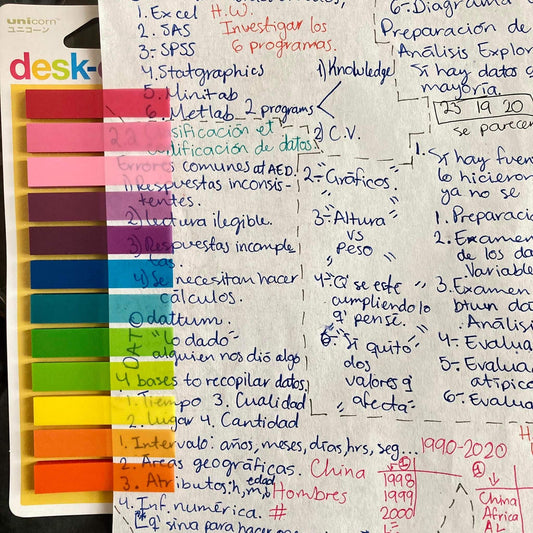 unicorn
ユニコーン
desk-
1. Excel H.W.
2. SAS Investigar los
3.- SPSS 6 programas.
4. Statgraphics
5. Minitab
6. Metlab 2 programs
1) Knowledge
2) C.V.
2.2 Clasificación et
codificación de datos.
Errores comunes at AED.
1) Respuestas inconsis-
tentes.
2) lectura ilegible.
3) Respuestas incomple
tas.
4) Se necesitan hacer
cálculos.
dattum.
DATO
"Lo dado"
alguien nos dió algo
4 bases to recopilar datos.
1. Tiempo 3. Cualidad
2. Lugar 4. Cantidad
1. Intervalo: años, meses, días, hrs, seg... 1990-2020
2. Áreas geográficas. China
3. Atributos: h, m, edad Hombres
4. Inf. numérica. #
q' sirva para hacer
2.- Gráficos.
3.- Altura
vs
peso
4.- Q' se esté
cumpliendo lo
q' pensé.
5.- Si quito
dos
valores q'
afecta
1998
1999
2000
China
Africa
AL
6.- Diagrama
Preparación de
Análisis Explor
Si hay datos q
mayoría.
23 19 20
se parecen
1. Si hay fuer
lo hicieron
ya no se
1. Preparació
2. Examen
de los da
Variable
3. Examen
btwn da
Análisi
4.- Evalua
5.- Evalua
atípico
6.- Evalua